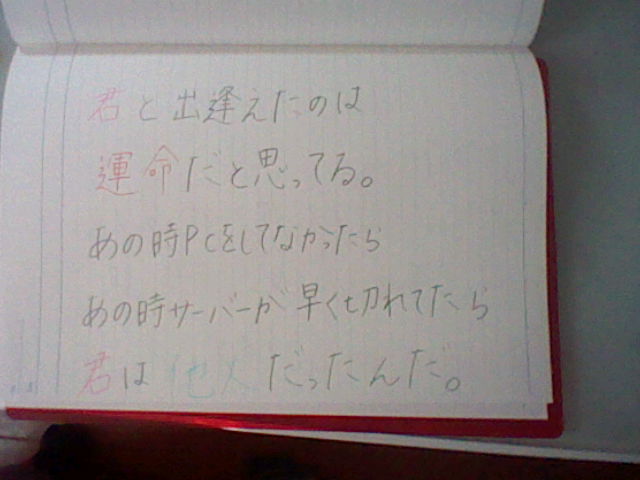 君と出逢えたのは
運命だと思ってる。
あの時PCをしてなかったら
あの時サーバーが早く切れてたら
君は他人だったんだ。